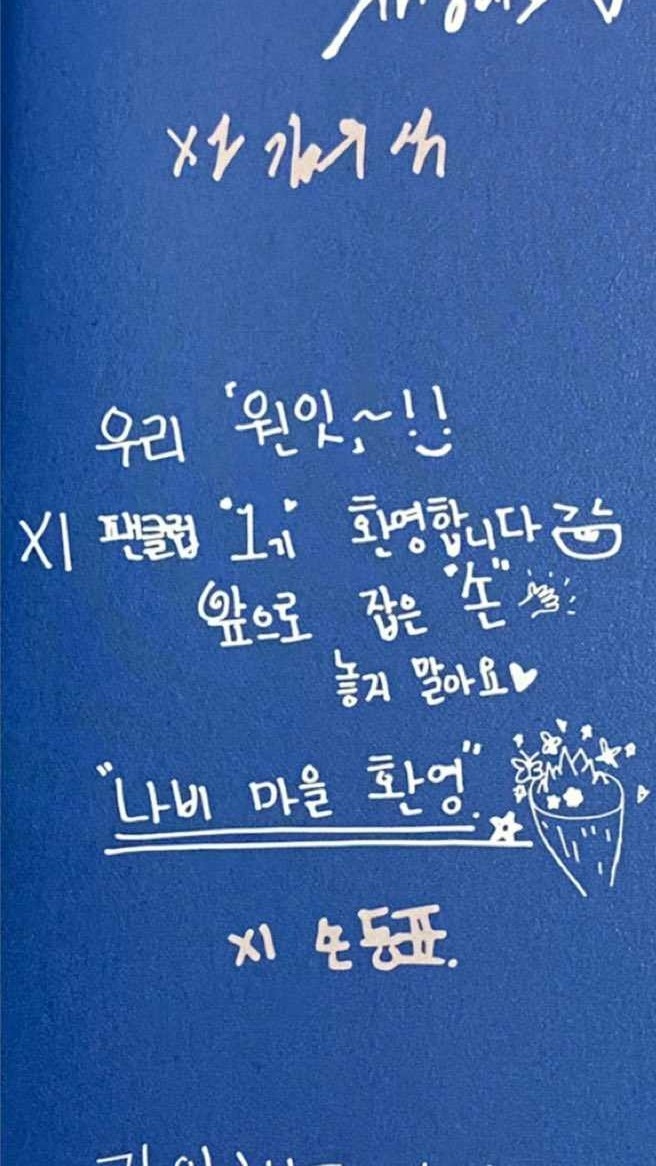 우리 '원잇~!!
XI 팬클럽 "1기" 환영합니다
앞으로 잡은 "손"
놓지 말아요♥
"나비 마을 환영".
XI 손동표.